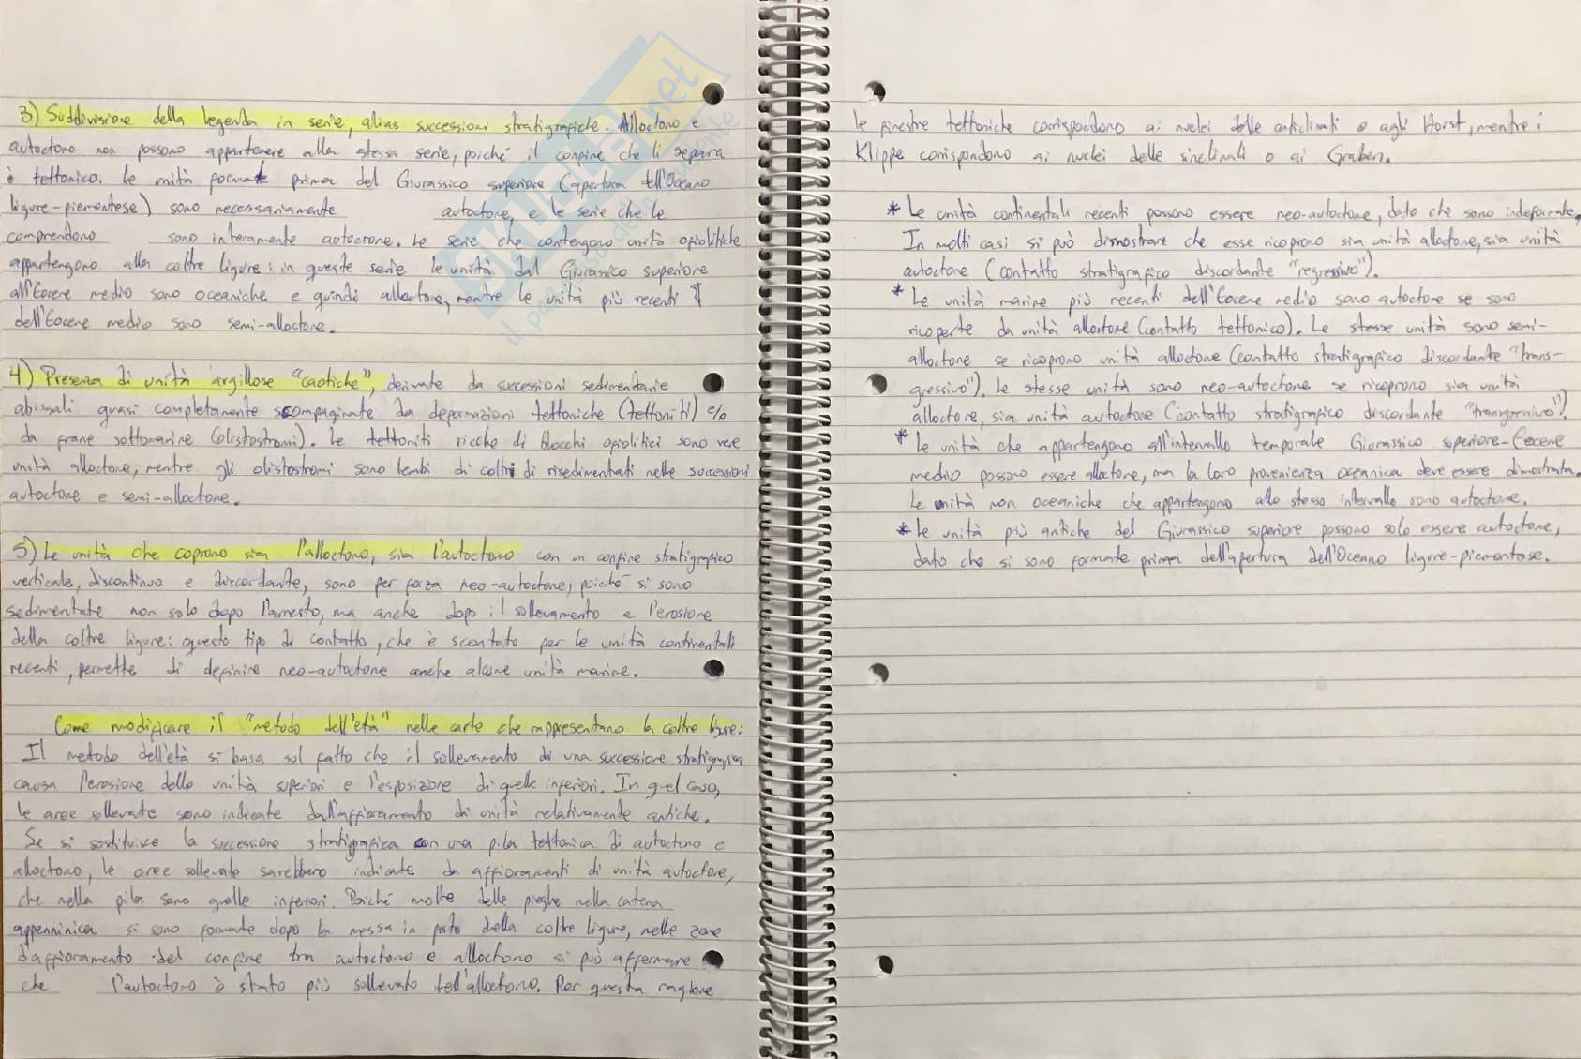 3) Suddivisione della legenda in serie, alias successioni stratigrafiche. Alloctono e
autoctono non possono appartenere alla stessa serie, poiché il confine che li separa
è tettonico. Le unità formate prima del Giurassico superiore (apertura dell'Oceano
ligure-piemontese) sono necessariamente autoctone, e le serie che le
comprendono sono interamente autoctone. Le serie che contengono unità ofiolitiche
appartengono alla coltre ligure: in queste serie le unità dal Giurassico superiore
all'Eocene medio sono oceaniche e quindi alloctone, mentre le unità più recenti
dell'Eocene medio sono semi-alloctone.
4) Presenza di unità argillose "caotiche", derivate da successioni sedimentarie
abissali quasi completamente scompaginate da deformazioni tettoniche (tettoniti) e/o
da frane sottomarine (olistostromi). Le tettoniti ricche di blocchi ofiolitici sono vere
unità alloctone, mentre gli olistostromi sono lembi di coltri di risedimentati nelle successioni
autoctone e semi-alloctone.
5) Le unità che coprono sia l'alloctono, sia l'autoctono con un confine stratigrafico
verticale, discontinuo e discordante, sono per forza neo-autoctone, poiché si sono
sedimentate non solo dopo l'arresto, ma anche dopo il sollevamento e l'erosione
della coltre ligure: questo tipo di contatto, che è scontato per le unità continentali
recenti, permette di definire neo-autoctone anche alcune unità marine.
Come modificare il "metodo dell'età" nelle carte che rappresentano la coltre ligure:
Il metodo dell'età si basa sul fatto che il sollevamento di una successione stratigrafica
causa l'erosione delle unità superiori e l'esposizione di quelle inferiori. In quel caso,
le aree sollevate sono indicate dall'affioramento di unità relativamente antiche.
Se si sostituisce la successione stratigrafica con una pila tettonica di autoctono e
alloctono, le aree sollevate sarebbero indicate da affioramenti di unità autoctone,
che nella pila sono quelle inferiori. Poiché molte delle pieghe nella catena
appenninica si sono formate dopo la messa in posto della coltre ligure, nelle zone
d'affioramento del confine tra autoctono e alloctono si può affermare
che l'autoctono è stato più sollevato dell'alloctono. Per questa ragione
le finestre tettoniche corrispondono ai nuclei delle anticlinali o agli Horst, mentre i
Klippe corrispondono ai nuclei delle sinclinali o ai Graben.
* Le unità continentali recenti possono essere neo-autoctone, dato che sono indeformate.
In molti casi si può dimostrare che esse ricoprono sia unità alloctone, sia unità
autoctone (contatto stratigrafico discordante "regressivo").
* Le unità marine più recenti dell'Eocene medio sono autoctone se sono
ricoperte da unità alloctone (contatto tettonico). Le stesse unità sono semi-
alloctone se ricoprono unità alloctone (contatto stratigrafico discordante "trans-
gressivo"). Le stesse unità sono neo-autoctone se ricoprono sia unità
alloctone, sia unità autoctone (contatto stratigrafico discordante "transgressivo").
* Le unità che appartengono all'intervallo temporale Giurassico superiore-Eocene
medio possono essere alloctone, ma la loro provenienza oceanica deve essere dimostrata.
Le unità non oceaniche che appartengono allo stesso intervallo sono autoctone.
* Le unità più antiche del Giurassico superiore possono solo essere autoctone,
dato che si sono formate prima dell'apertura dell'Oceano ligure-piemontese.